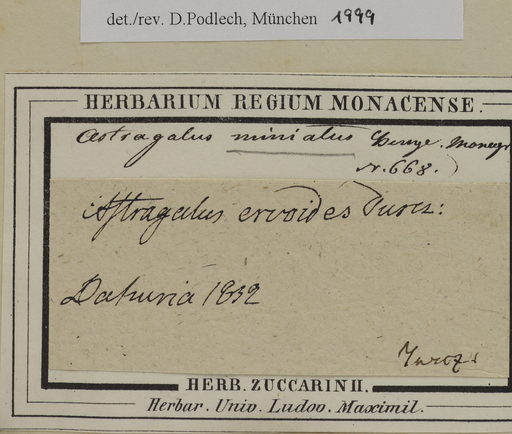 det./rev. D.Podlech, München 1999
HERBARIUM REGIUM MONACENSE.
Astragalus miniatus Bunge. Monogr
N. 668.)
Astragalus ervoides Turcz:
Dahuria 1832
Turcz.
HERB. ZUCCARINII.
Herbar. Univ. Ludov. Maximil.